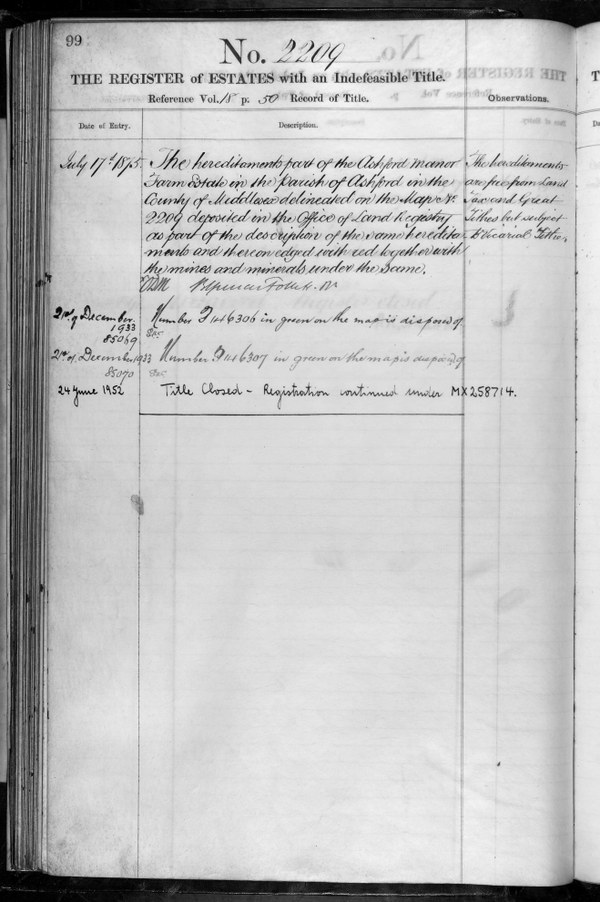 99
No. 2209
THE REGISTER of ESTATES with an Indefeasible Title.
Reference Vol. 18 p. 50 Record of Title.
Observations.
Date of Entry.
Description.
July 17th 1875
The hereditaments part of the Ashford Manor
Farm Estate in the Parish of Ashford in the
County of Middlesex delineated on the Map No.
2209 deposited in the Office of Land Registry
as part of the description of the same heredita
ments and thereon edged with red together with
the mines and minerals under the same.
The hereditaments
are free from Land
Tax and Great
Tithes but subject
to Vicarial Tithes.
2nd of December
1933
85069
Number 146306 in green on the map is disposed of
2nd of December 1933
85070
Number 146307 in green on the map is disposed of
24 June 1952
Title Closed - Registration continued under MX258714.